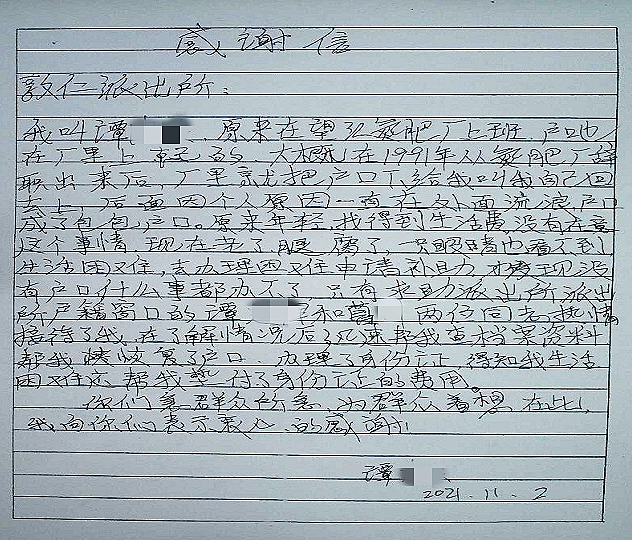 感谢信
敦仁派出所：
我叫谭 原来在望江氮肥厂上班，户口也
在厂里上班的，大概在1991年从氮肥厂辞
职出来后，厂里就把户口下给我叫我自己回
去上，后面因个人原因一直在外面流浪户口
成了包包户口。原来年轻，找得到生活费，没有在意
这个事情，现在老了，腿瘸了，一只眼睛也看不到
生活困难，去办理困难申请补助，才发现没
有户口什么事都办不了，只有求助派出所派出
所户籍窗口的谭 和 两位同志热情
接待了我，在了解情况后 帮我查档案资料
帮我恢复了户口，办理了身份证，得知我生活
困难 帮我垫付了身份证的费用。
你们急群众所急，为群众着想，在此，
我向你们表示衷心的感谢！
谭
2021.11.2